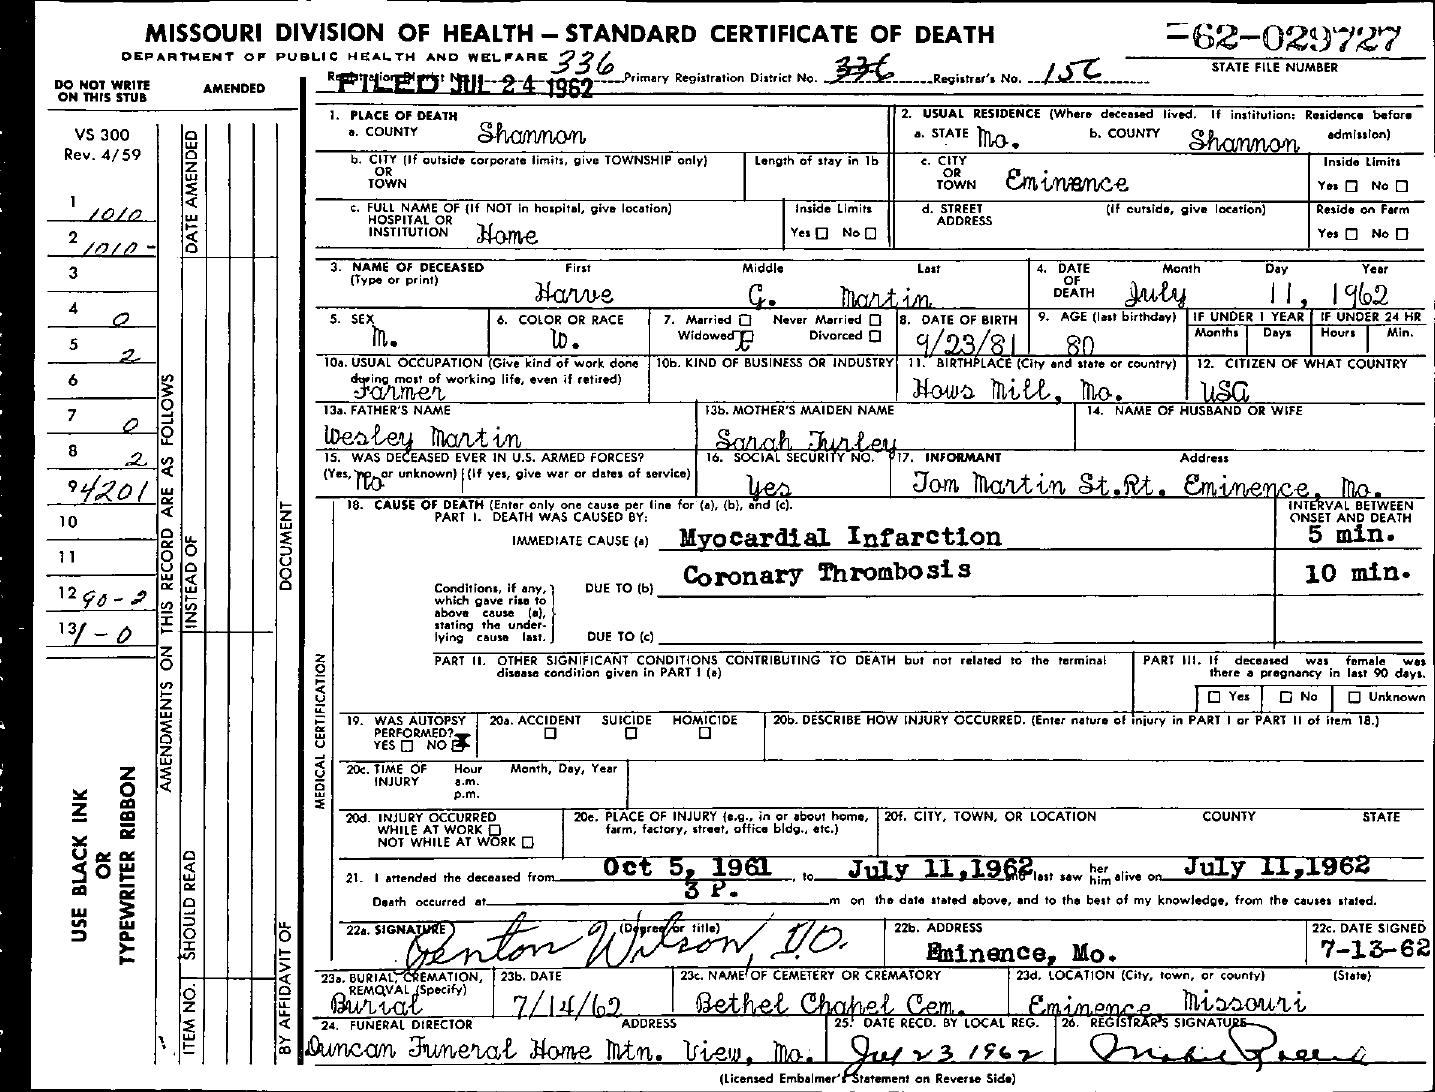 MISSOURI DIVISION OF HEALTH — STANDARD CERTIFICATE OF DEATH
-62-029727
STATE FILE NUMBER
DEPARTMENT OF PUBLIC HEALTH AND WELFARE 336
Registration District No. Primary Registration District No. 336 Registrar's No.
FILED JUL 24 1962
DO NOT WRITE
ON THIS STUB
AMENDED
VS 300
Rev. 4/59
1 1010
2 1010 -
3
4 0
5 2
6
7 0
8 2
9 4201
10
11
12 90-2
13 1-0
USE BLACK INK
OR
TYPEWRITER RIBBON
AMENDMENTS ON THIS RECORD ARE AS FOLLOWS
DATE AMENDED
INSTEAD OF
SHOULD READ
ITEM NO.
DOCUMENT
BY AFFIDAVIT OF
MEDICAL CERTIFICATION
1. PLACE OF DEATH
a. COUNTY Shannon
2. USUAL RESIDENCE (Where deceased lived. If institution: Residence before admission)
a. STATE Mo. b. COUNTY Shannon
b. CITY (If outside corporate limits, give TOWNSHIP only)
OR
TOWN
Length of stay in 1b
c. CITY
OR
TOWN Eminence
Inside Limits
Yes No
c. FULL NAME OF (If NOT in hospital, give location)
HOSPITAL OR
INSTITUTION Home
Inside Limits
Yes No
d. STREET
ADDRESS
(If outside, give location)
Reside on Farm
Yes No
3. NAME OF DECEASED
(Type or print)
First Middle Last
Harve G. Martin
4. DATE
OF
DEATH
Month Day Year
July 11, 1962
5. SEX
M.
6. COLOR OR RACE
W.
7. Married Never Married
Widowed Divorced
8. DATE OF BIRTH
9/23/81
9. AGE (last birthday)
80
IF UNDER 1 YEAR
Months Days
IF UNDER 24 HR
Hours Min.
10a. USUAL OCCUPATION (Give kind of work done
during most of working life, even if retired)
Farmer
10b. KIND OF BUSINESS OR INDUSTRY
11. BIRTHPLACE (City and state or country)
Hows Mill, Mo.
12. CITIZEN OF WHAT COUNTRY
USA
13a. FATHER'S NAME
Wesley Martin
13b. MOTHER'S MAIDEN NAME
Sarah Turley
14. NAME OF HUSBAND OR WIFE
15. WAS DECEASED EVER IN U.S. ARMED FORCES?
(Yes, no, or unknown) (If yes, give war or dates of service)
No
16. SOCIAL SECURITY NO.
Yes
17. INFORMANT Address
Tom Martin St.Rt. Eminence, Mo.
18. CAUSE OF DEATH (Enter only one cause per line for (a), (b), and (c).
PART I. DEATH WAS CAUSED BY:
INTERVAL BETWEEN
ONSET AND DEATH
IMMEDIATE CAUSE (a) Myocardial Infarction 5 min.
Conditions, if any,
which gave rise to
above cause (a),
stating the under-
lying cause last.
DUE TO (b) Coronary Thrombosis 10 min.
DUE TO (c)
PART II. OTHER SIGNIFICANT CONDITIONS CONTRIBUTING TO DEATH but not related to the terminal
disease condition given in PART I (a)
PART III. If deceased was female was
there a pregnancy in last 90 days.
Yes No Unknown
19. WAS AUTOPSY
PERFORMED?
YES NO X
20a. ACCIDENT SUICIDE HOMICIDE
20b. DESCRIBE HOW INJURY OCCURRED. (Enter nature of injury in PART I or PART II of item 18.)
20c. TIME OF
INJURY
Hour
a.m.
p.m.
Month, Day, Year
20d. INJURY OCCURRED
WHILE AT WORK
NOT WHILE AT WORK
20e. PLACE OF INJURY (e.g., in or about home,
farm, factory, street, office bldg., etc.)
20f. CITY, TOWN, OR LOCATION COUNTY STATE
21. I attended the deceased from Oct 5, 1961, to July 11, 1962 and last saw her him alive on July 11, 1962
Death occurred at 3 P. m on the date stated above, and to the best of my knowledge, from the causes stated.
22a. SIGNATURE (Degree or title)
Wilson, D.O.
22b. ADDRESS
Eminence, Mo.
22c. DATE SIGNED
7-13-62
23a. BURIAL, CREMATION,
REMOVAL (Specify)
Burial
23b. DATE
7/14/62
23c. NAME OF CEMETERY OR CREMATORY
Bethel Chapel Cem.
23d. LOCATION (City, town, or county) (State)
Eminence, Missouri
24. FUNERAL DIRECTOR ADDRESS
Duncan Funeral Home Mtn. View, Mo.
25. DATE RECD. BY LOCAL REG.
July 23 1962
26. REGISTRAR'S SIGNATURE
(Licensed Embalmer's Statement on Reverse Side)